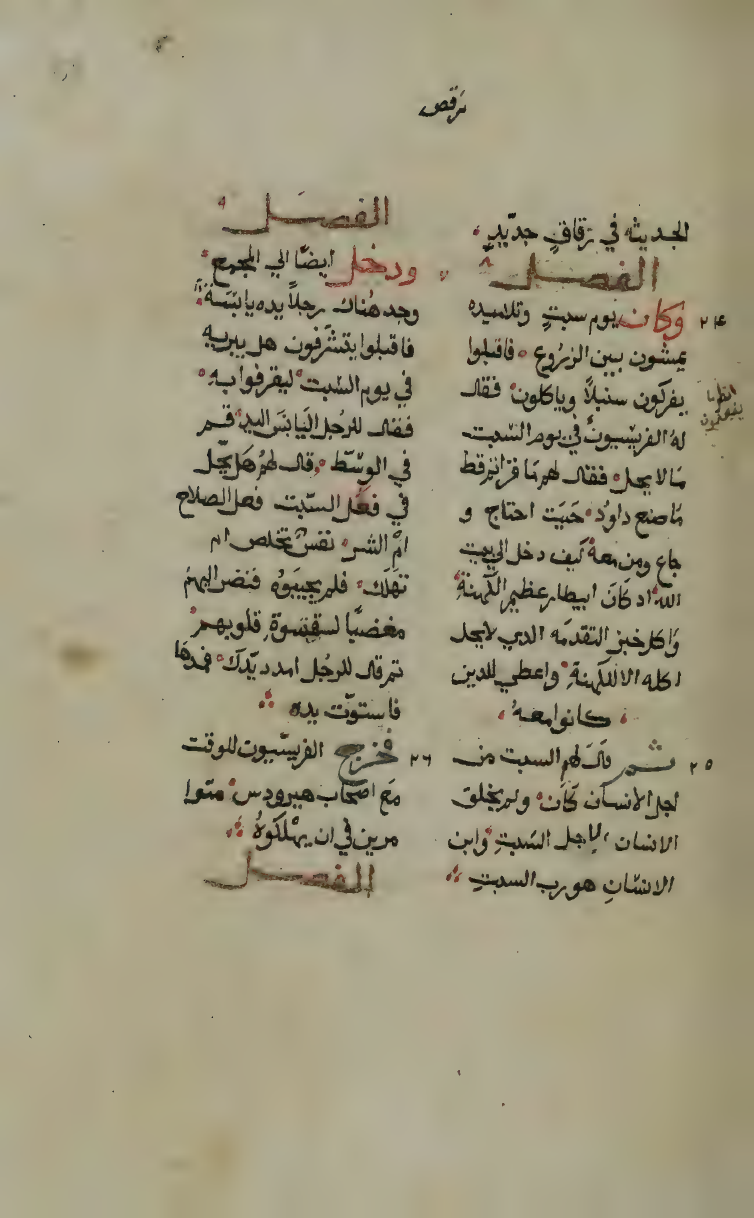 مرقص
الحديثه في زقاقٍ جديدٍ
الفصل ٨
٢٤ وكان يوم سبتٍ وتلاميده
يمشون بين الزروع فاقبلوا
يفركون سنبلاً وياكلون فقال
له الفريسيون في يوم السبت
ما لا يحل فقال لهم ما قراتم قط
ما صنع داود حيت احتاج و
جاع ومن معه كيف دخل الي بيت
الله اد كان ابيطار عظيم الكهنة
واكل خبز التقدمه الدي لا يحل
اكله الا للكهنة واعطي للدين
كانوا معه
٢٥ ثم قال لهم السبت من
اجل الانسان كان ولم يخلق
الانسان لاجل السبت وابن
الانسان هو رب السبت
الفصل ٩
ودخل ايضًا الي المجمع
وجد هناك رجلاً يده يابسة
فاقبلوا يتشرفون هل يبريه
في يوم السبت ليقرفوا به
فقال للرجل اليابس اليد قم
في الوسط وقال لهم هل يحل
في فعل السبت فعل الصلاح
ام الشر نفسٌ تخلص ام
تهلك فلم يجيبوه فنضر اليهم
مغضبًا قلوبهم
تم قال للرجل امدد يدك فمدها
فاستوت يده
٢٦ فخرج الفريسيون للوقت
مع اصحاب هيرودس متوا
مرين في ان يهلكوه
الفصل